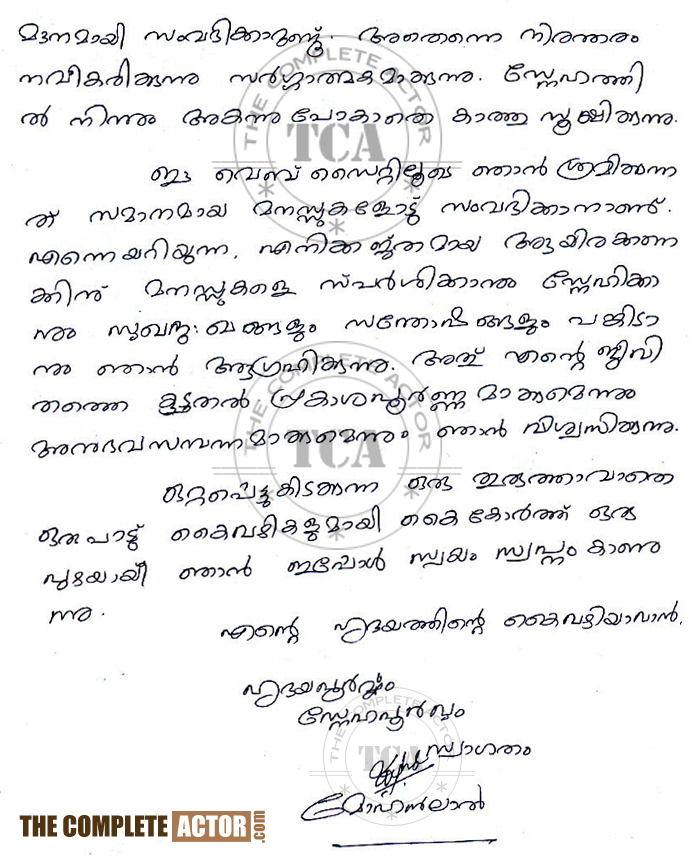 മദനമായി സംവദിക്കാറുണ്ട്. അതെന്നെ നിരന്തരം
നവീകരിക്കുന്നു സർഗ്ഗാത്മകമാക്കുന്നു. സ്നേഹത്തി
ൽ നിന്നും അകന്നുപോകാതെ കാത്തു സൂക്ഷിക്കുന്നു.
ഈ വെബ് സൈറ്റിലൂടെ ഞാൻ ശ്രമിക്കുന്ന
ത് സമാനമായ മനസ്സുകളോടു സംവദിക്കാനാണ്.
എന്നെയറിയുന്ന, എനിക്കജ്ഞാതമായ ആയിരക്കണ
ക്കിനു മനസ്സുകളെ സ്പർശിക്കാനും സ്നേഹിക്കാ
നും സുഖദുഃഖങ്ങളും സന്തോഷങ്ങളും പങ്കിടാ
നും ഞാൻ ആഗ്രഹിക്കുന്നു. അത് എന്റെ ജീവി
തത്തെ കൂടുതൽ പ്രകാശപൂർണ്ണമാക്കുമെന്നും
അനുഭവസമ്പന്നമാക്കുമെന്നും ഞാൻ വിശ്വസിക്കുന്നു.
ഒറ്റപ്പെട്ടുകിടക്കുന്ന ഒരു തുരുത്താവാതെ
ഒരുപാടു കൈവഴികളുമായി കൈകോർത്ത് ഒരു
പുഴയായ് ഞാൻ ഇപ്പോൾ സ്വയം സ്വപ്നം കാണു
ന്നു.
എന്റെ ഹൃദയത്തിന്റെ കൈവഴിയാവാൻ,
ഹൃദയപൂർവ്വം
സ്നേഹപൂർവ്വം
സ്വാഗതം
മോഹൻലാൽ
THE COMPLETE ACTOR
TCA
THE COMPLETE ACTOR
TCA
THE COMPLETE ACTOR
TCA
THE COMPLETE ACTOR.com